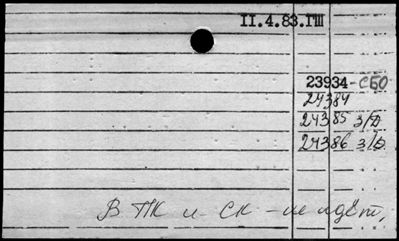 II.4.83.ГШ
23934-СБО
24384
24385 з/д
24386 з/д
В ТК и СК - не идёт.